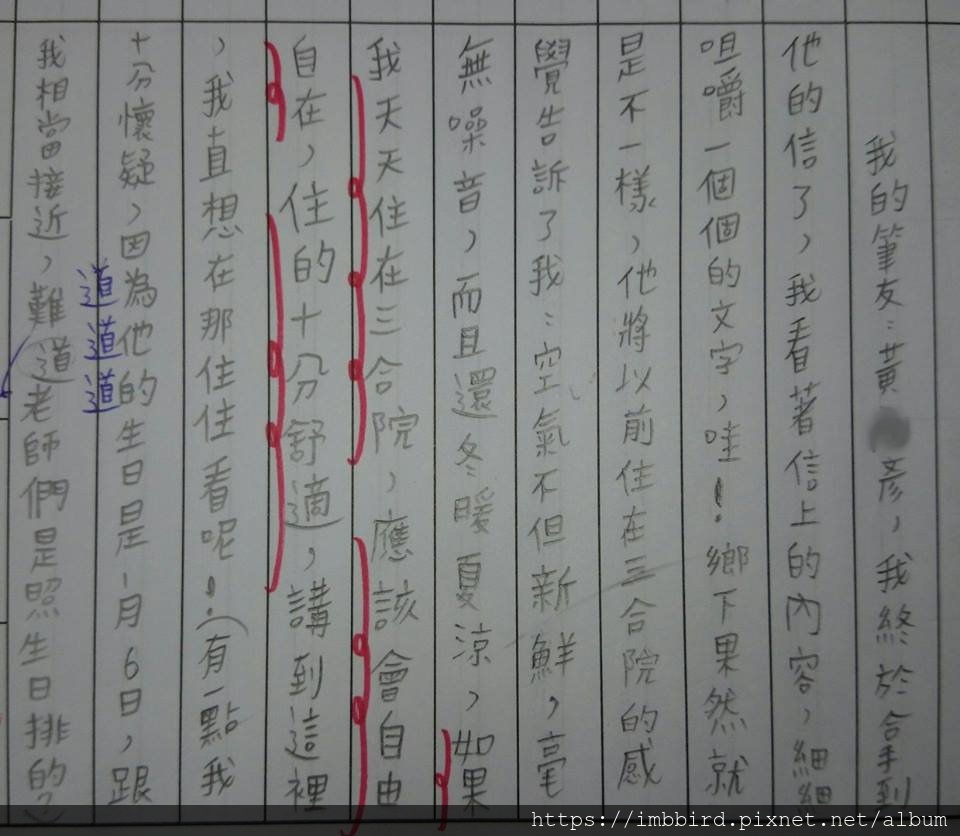 我的筆友：黃彥，我終於拿到
他的信了，我看著信上的內容，細細
咀嚼一個個的文字，哇！鄉下果然就
是不一樣，他將以前住在三合院的感
覺告訴了我：空氣不但新鮮，毫
無噪音，而且還冬暖夏涼，如果
我天天住在三合院，應該會自由
自在，住的十分舒適，講到這裡
，我直想在那住住看呢！(有一點我
十分懷疑，因為他的生日是1月6日，跟
道道道
我相當接近，難道老師們是照生日排的？)
https://imbbird.pixnet.net/album